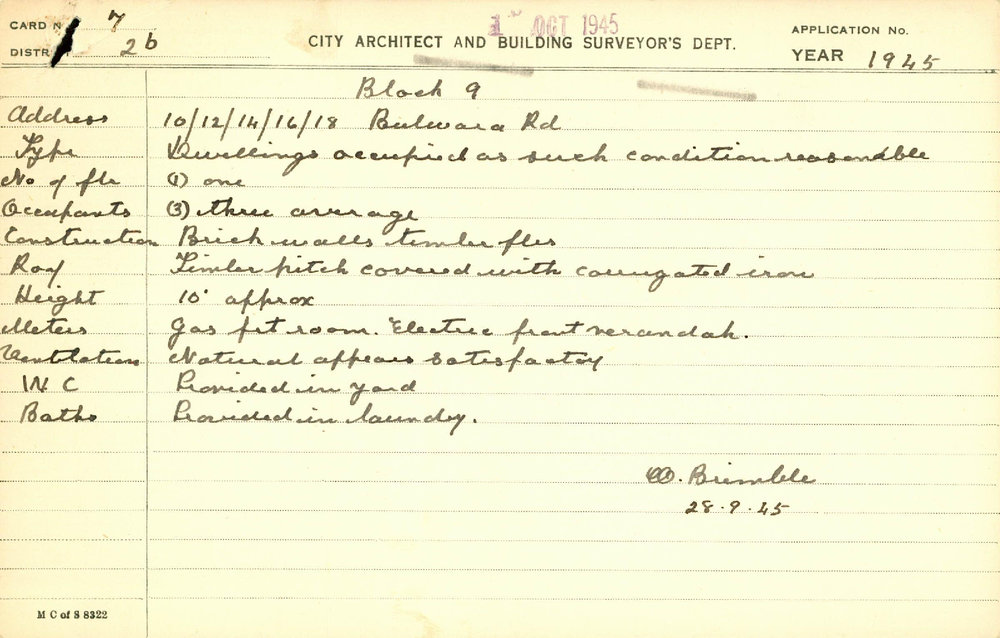 CARD N 7
1 OCT 1945
APPLICATION No.
DISTR T 2b
CITY ARCHITECT AND BUILDING SURVEYOR'S DEPT.
YEAR 1945
Block 9
Address 10/12/14/16/18 Bulwara Rd
Type Dwellings occupied as such condition reasonable
No of flr (1) one
Occupants (3) three average
Construction Brick walls timber flrs
Roof Timber pitch covered with corrugated iron
Height 10' approx
Meters Gas frt room. Electric front verandah.
Ventilation Natural appears satisfactoy
W C Provided in yard
Baths Provided in laundry.
W. Brimble
28.9.45
M C of S 8322